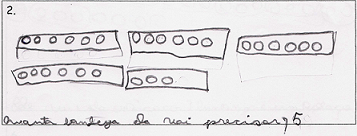 2.
quanta bandeja ela vai precisar? 5